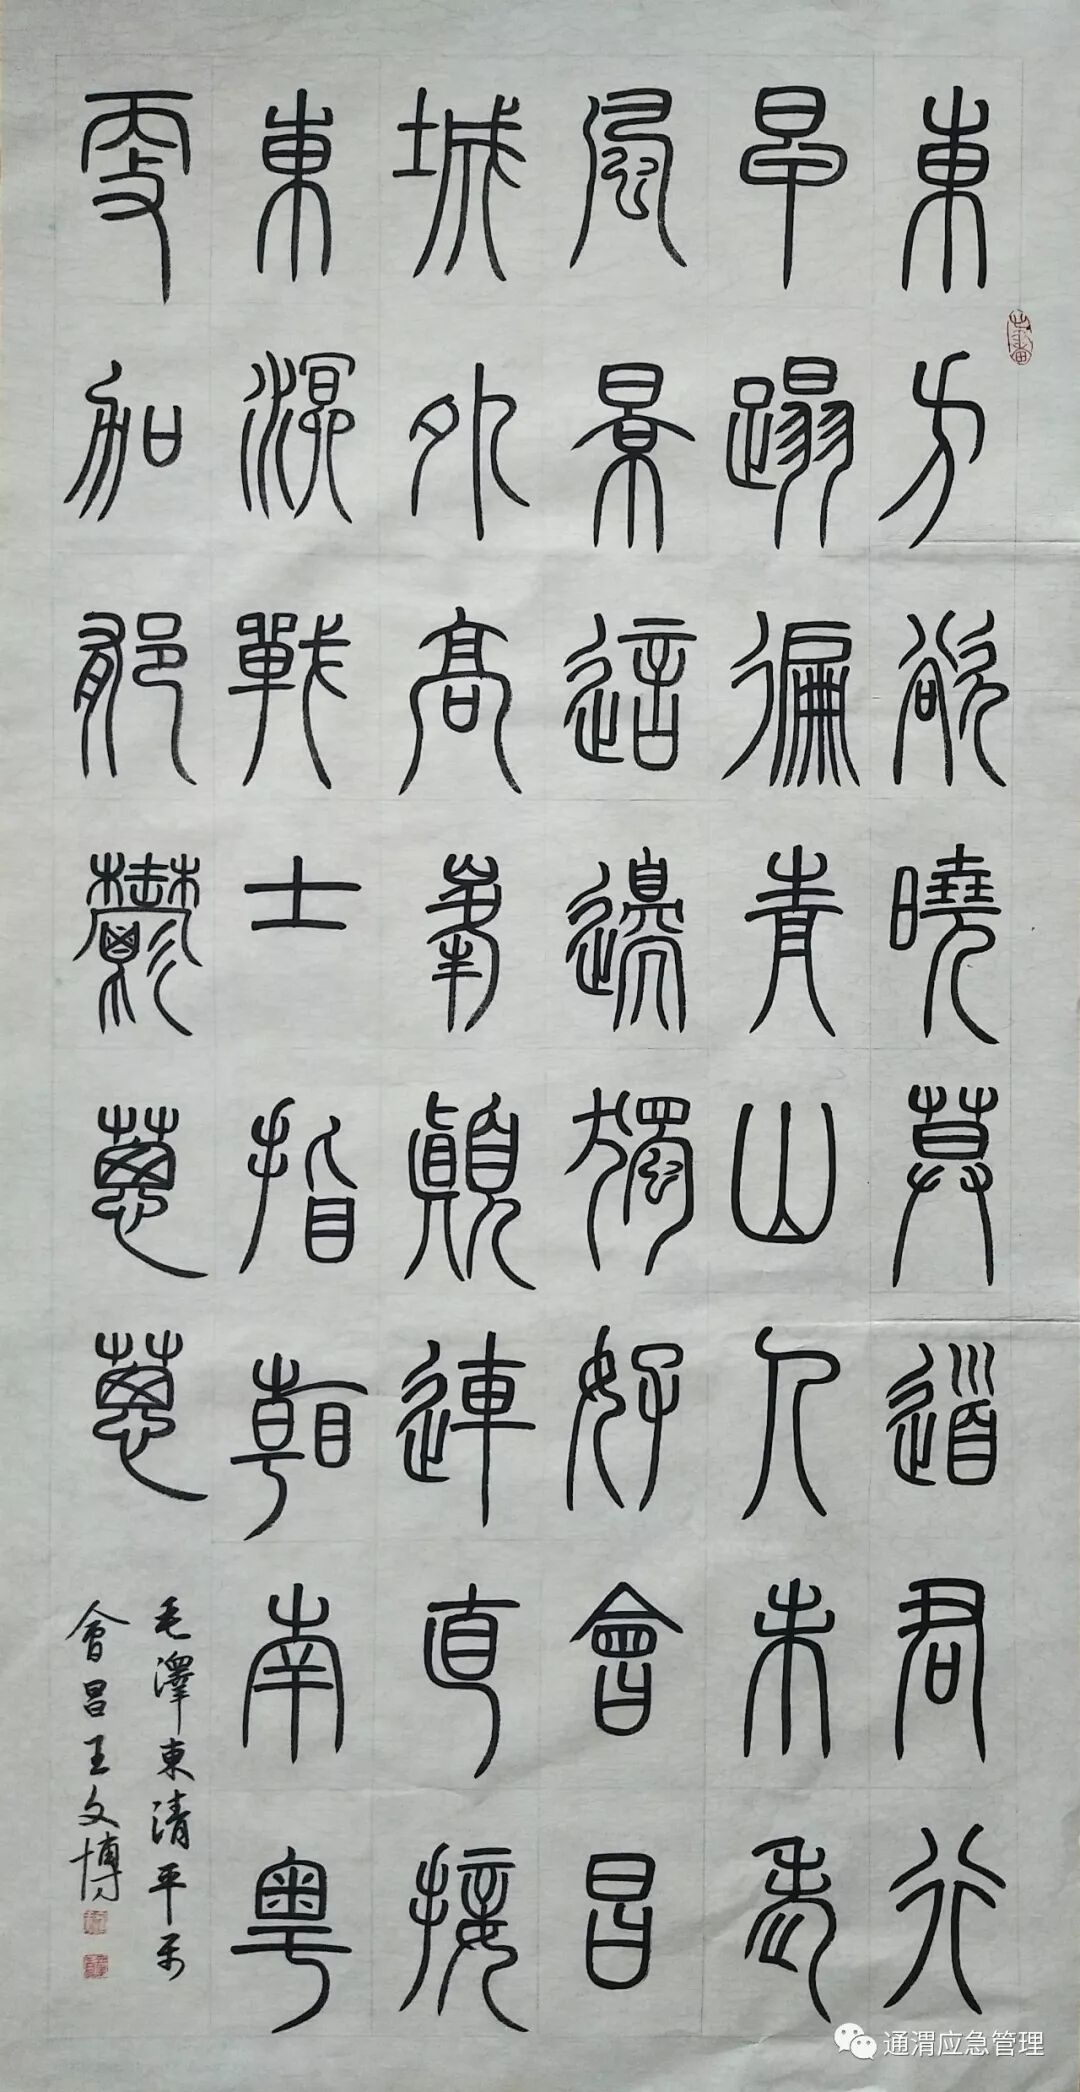 東方欲曉莫道君行
早蹋徧青山人未老
風景這邊獨好會昌
城外高峯顛連直接
東溟戰士指看南粵
更加郁鬱蔥蔥
毛澤東清平乐
會昌王文博
通渭应急管理